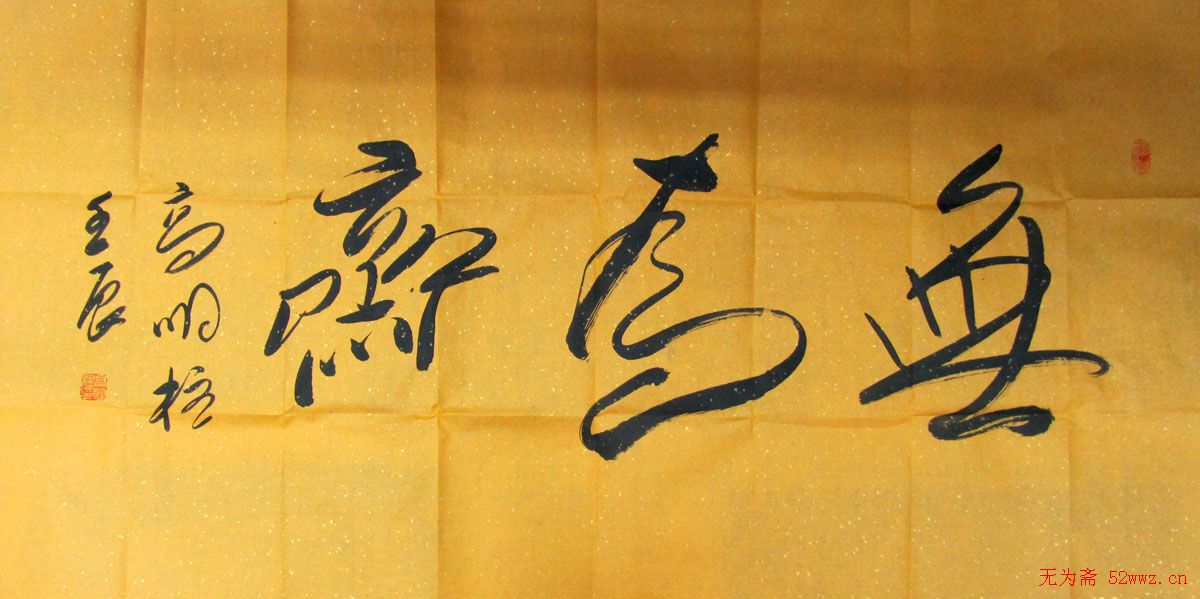 無為齋
高明柱
壬辰
无为斋 52wwz.cn